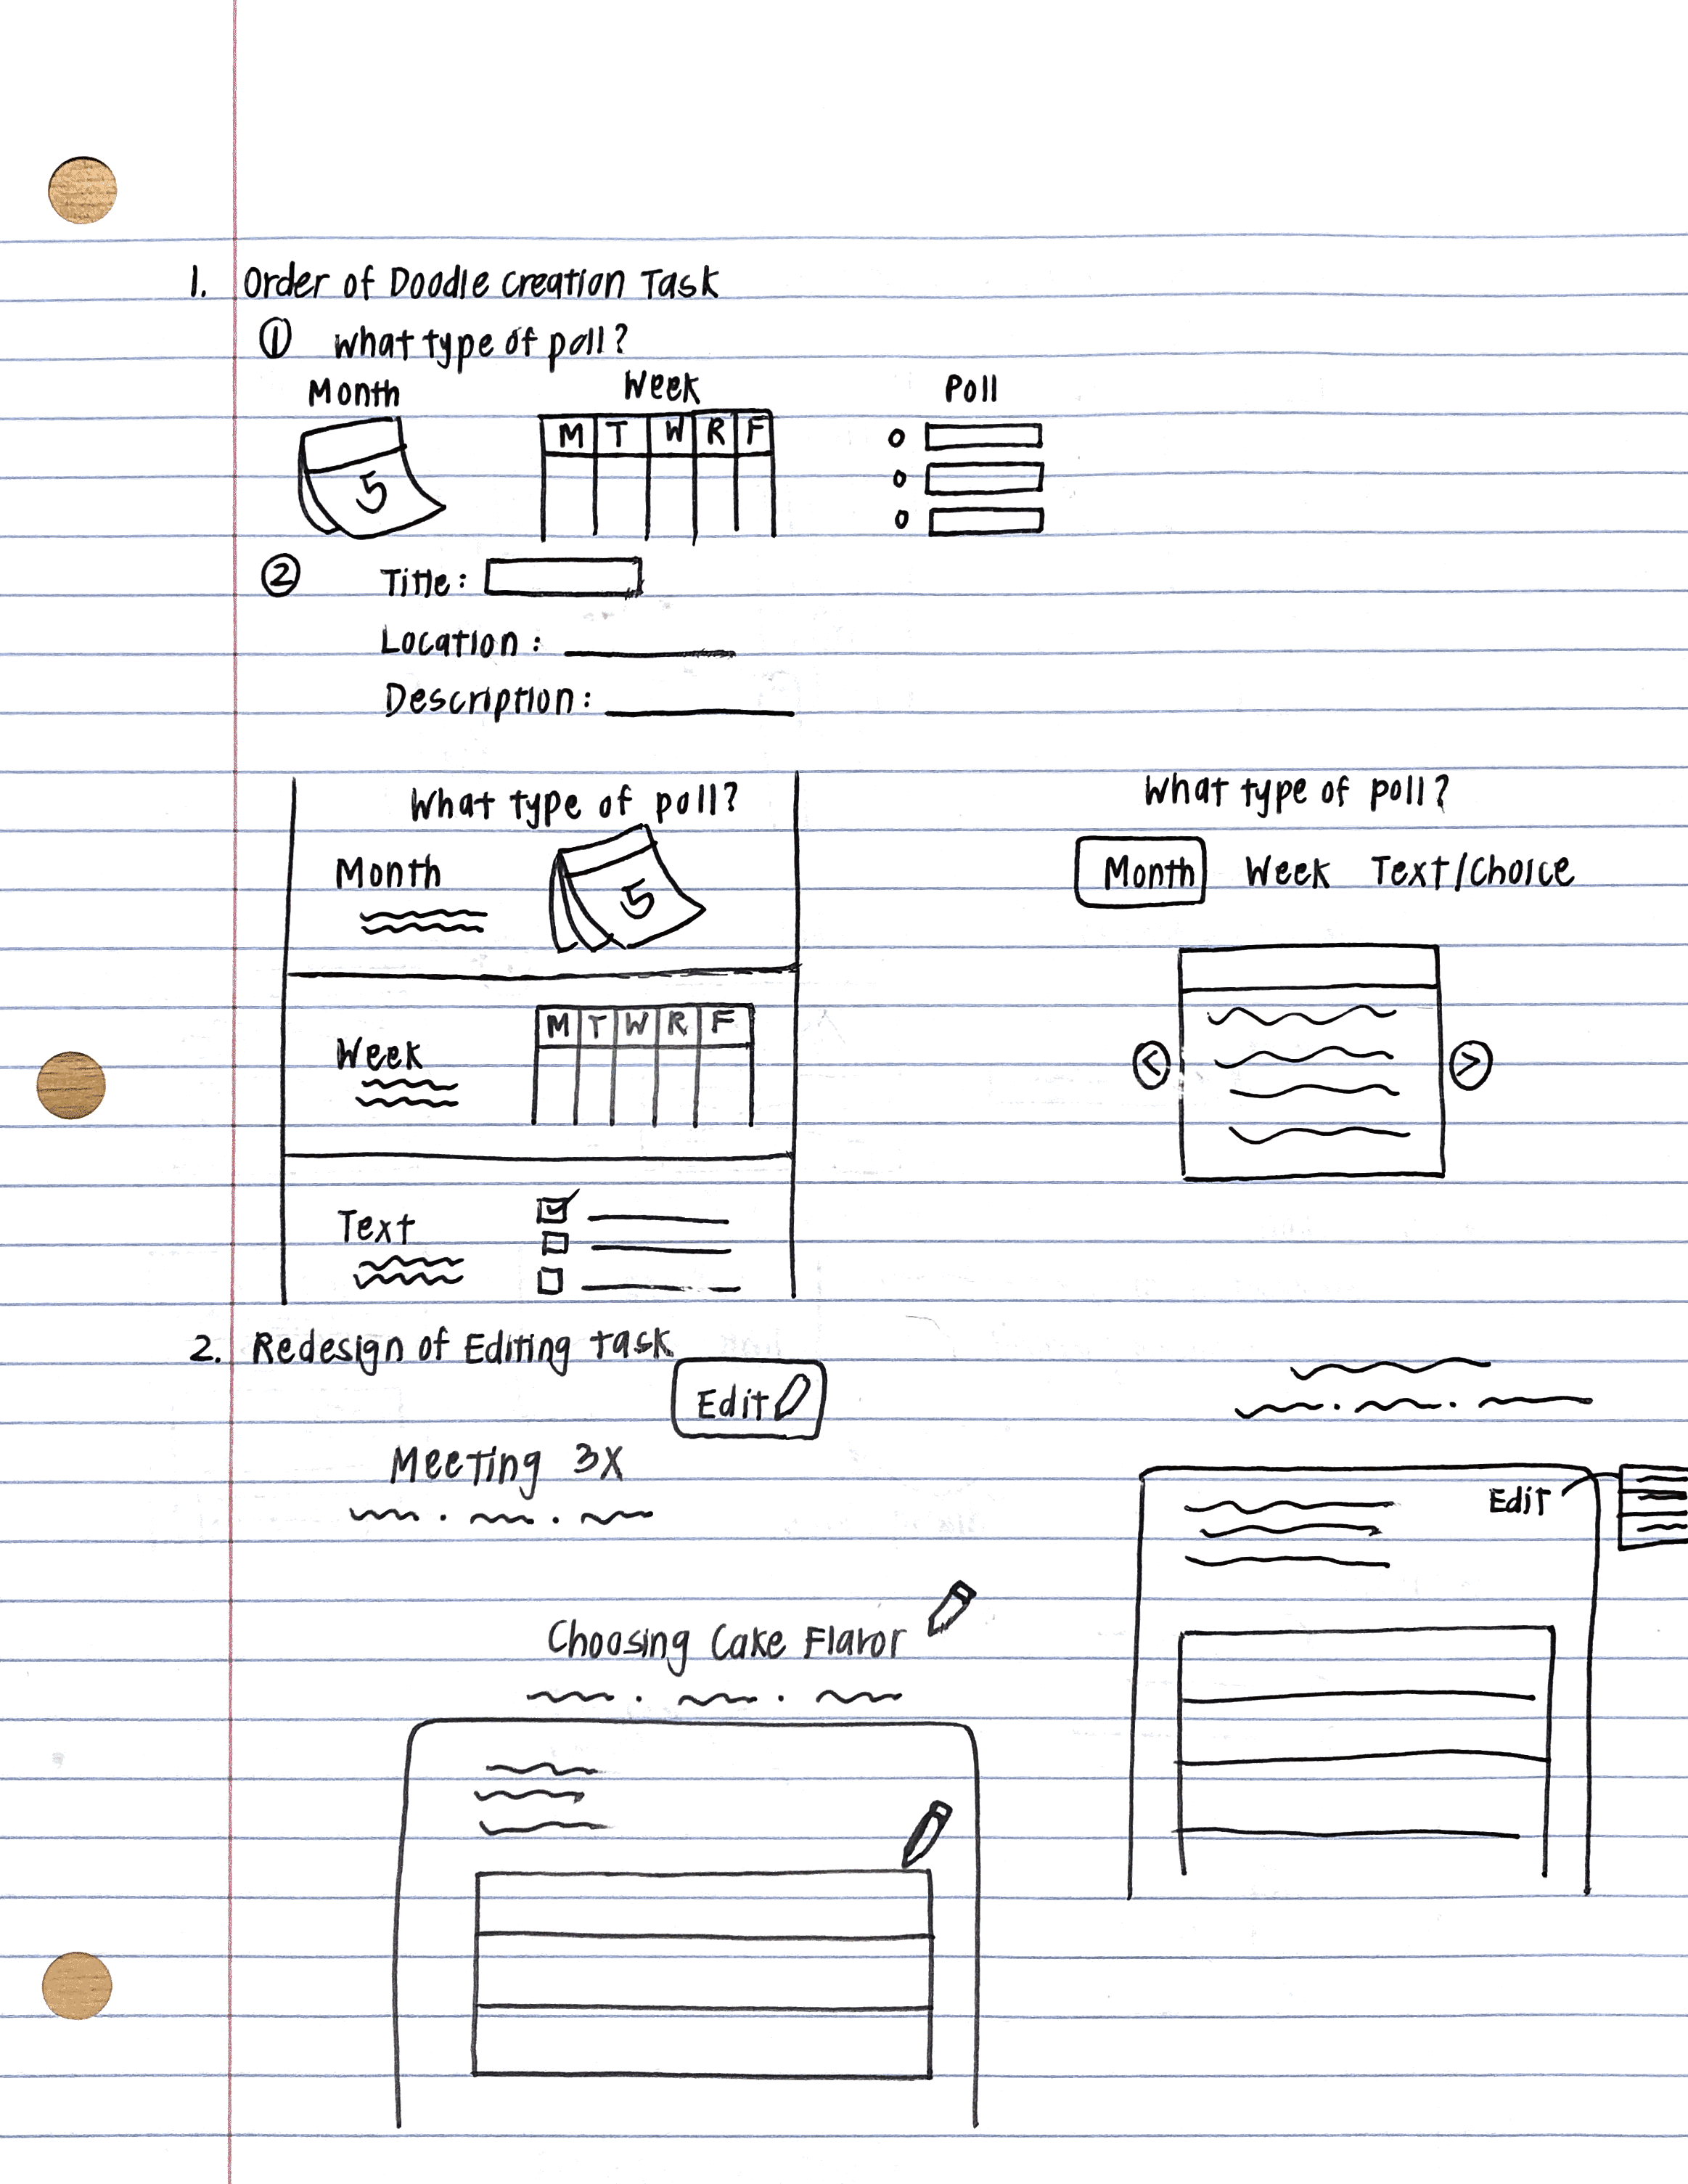 1. Order of Doodle Creation Task
① What type of poll?
Month Week Poll
5
M T W R F
② Title:
Location:
Description:
What type of poll?
Month
5
Week
M T W R F
Text
What type of poll?
Month Week Text/Choice
< >
2. Redesign of Editing Task
Edit
Meeting 3X
Edit
Choosing Cake Flavor